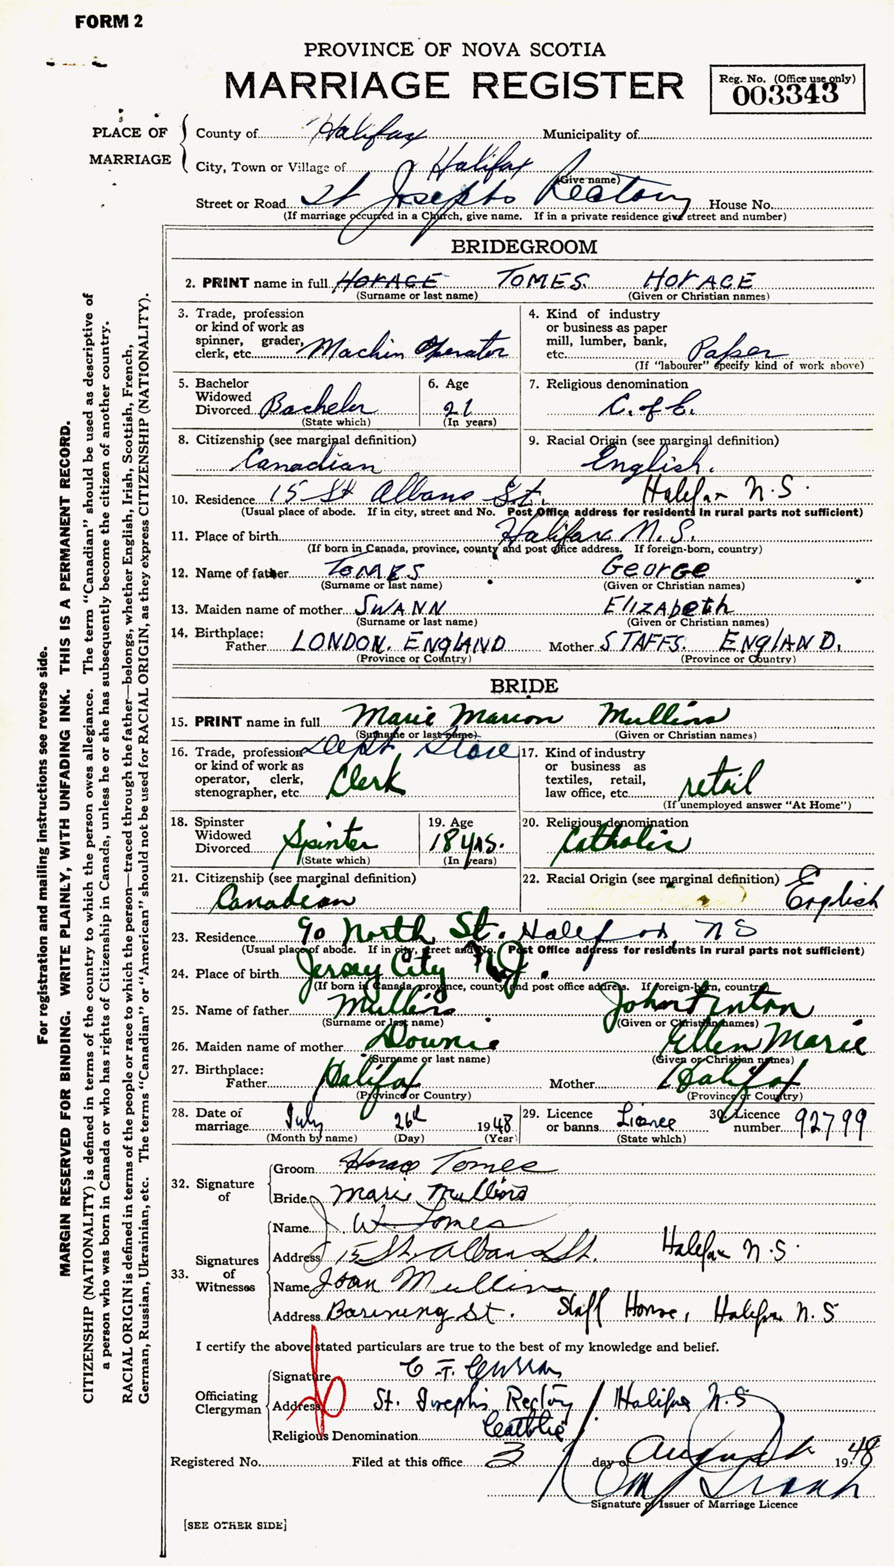 FORM 2
PROVINCE OF NOVA SCOTIA
MARRIAGE REGISTER
Reg. No. (Office use only)
003343
PLACE OF MARRIAGE
County of Halifax Municipality of
City, Town or Village of Halifax
(Give name)
Street or Road St Josephs Rectory House No.
(If marriage occurred in a Church, give name. If in a private residence give street and number)
BRIDEGROOM
2. PRINT name in full HORACE TOMES HORACE
(Surname or last name) (Given or Christian names)
3. Trade, profession
or kind of work as
spinner, grader,
clerk, etc. Machin Operator
4. Kind of industry
or business as paper
mill, lumber, bank,
etc. Paper
(If "labourer" specify kind of work above)
5. Bachelor
Widowed
Divorced Bachelor
(State which)
6. Age
21
(In years)
7. Religious denomination
C. of E.
8. Citizenship (see marginal definition)
Canadian
9. Racial Origin (see marginal definition)
English.
10. Residence 15 St Albans St. Halifax N.S.
(Usual place of abode. If in city, street and No. Post Office address for residents in rural parts not sufficient)
11. Place of birth Halifax N.S.
(If born in Canada, province, county and post office address. If foreign-born, country)
12. Name of father TOMES GEORGE
(Surname or last name) (Given or Christian names)
13. Maiden name of mother SWANN ELIZABETH
(Surname or last name) (Given or Christian names)
14. Birthplace:
Father LONDON. ENGLAND Mother STAFFS. ENGLAND.
(Province or Country) (Province or Country)
BRIDE
15. PRINT name in full Marie Marion Mullins
(Surname or last name) (Given or Christian names)
16. Trade, profession
or kind of work as
operator, clerk,
stenographer, etc. Dept Store Clerk
17. Kind of industry
or business as
textiles, retail,
law office, etc. retail
(If unemployed answer "At Home")
18. Spinster
Widowed
Divorced Spinter
(State which)
19. Age
18 yrs.
(In years)
20. Religious denomination
Catholic
21. Citizenship (see marginal definition)
Canadian
22. Racial Origin (see marginal definition) English
23. Residence 90 North St. Halifax N S
(Usual place of abode. If in city, street and No. Post Office address for residents in rural parts not sufficient)
24. Place of birth Jersey City N.J.
(If born in Canada, province, county and post office address. If foreign-born, country)
25. Name of father Mullins John Finton
(Surname or last name) (Given or Christian names)
26. Maiden name of mother Downie Ellen Marie
(Surname or last name) (Given or Christian names)
27. Birthplace:
Father Halifax Mother Halifax
(Province or Country) (Province or Country)
28. Date of
marriage July 26th 1948
(Month by name) (Day) (Year)
29. Licence
or banns
(State which)
30. Licence
number 92799
32. Signature
of
Groom Horace Tomes
Bride Marie Mullins
33. Signatures
of
Witnesses
Name J W Tomes
Address 15 St. Albans St. Halifax N.S.
Name Joan Mullins
Address St. Staff House, Halifax N.S
I certify the above stated particulars are true to the best of my knowledge and belief.
Officiating
Clergyman
Signature
Address St. Joseph's Rectory Halifax N.S
Religious Denomination Catholic
Registered No. Filed at this office 3 day of August 1948
Signature of Issuer of Marriage Licence
[SEE OTHER SIDE]
For registration and mailing instructions see reverse side.
MARGIN RESERVED FOR BINDING. WRITE PLAINLY, WITH UNFADING INK. THIS IS A PERMANENT RECORD.
CITIZENSHIP (NATIONALITY) is defined in terms of the country to which the person owes allegiance. The term "Canadian" should be used as descriptive of
a person who was born in Canada or who has rights of Citizenship in Canada, unless he or she has subsequently become the citizen of another country.
RACIAL ORIGIN is defined in terms of the people or race to which the person—traced through the father—belongs, whether English, Irish, Scottish, French,
German, Russian, Ukrainian, etc. The terms "Canadian" or "American" should not be used for RACIAL ORIGIN, as they express CITIZENSHIP (NATIONALITY).